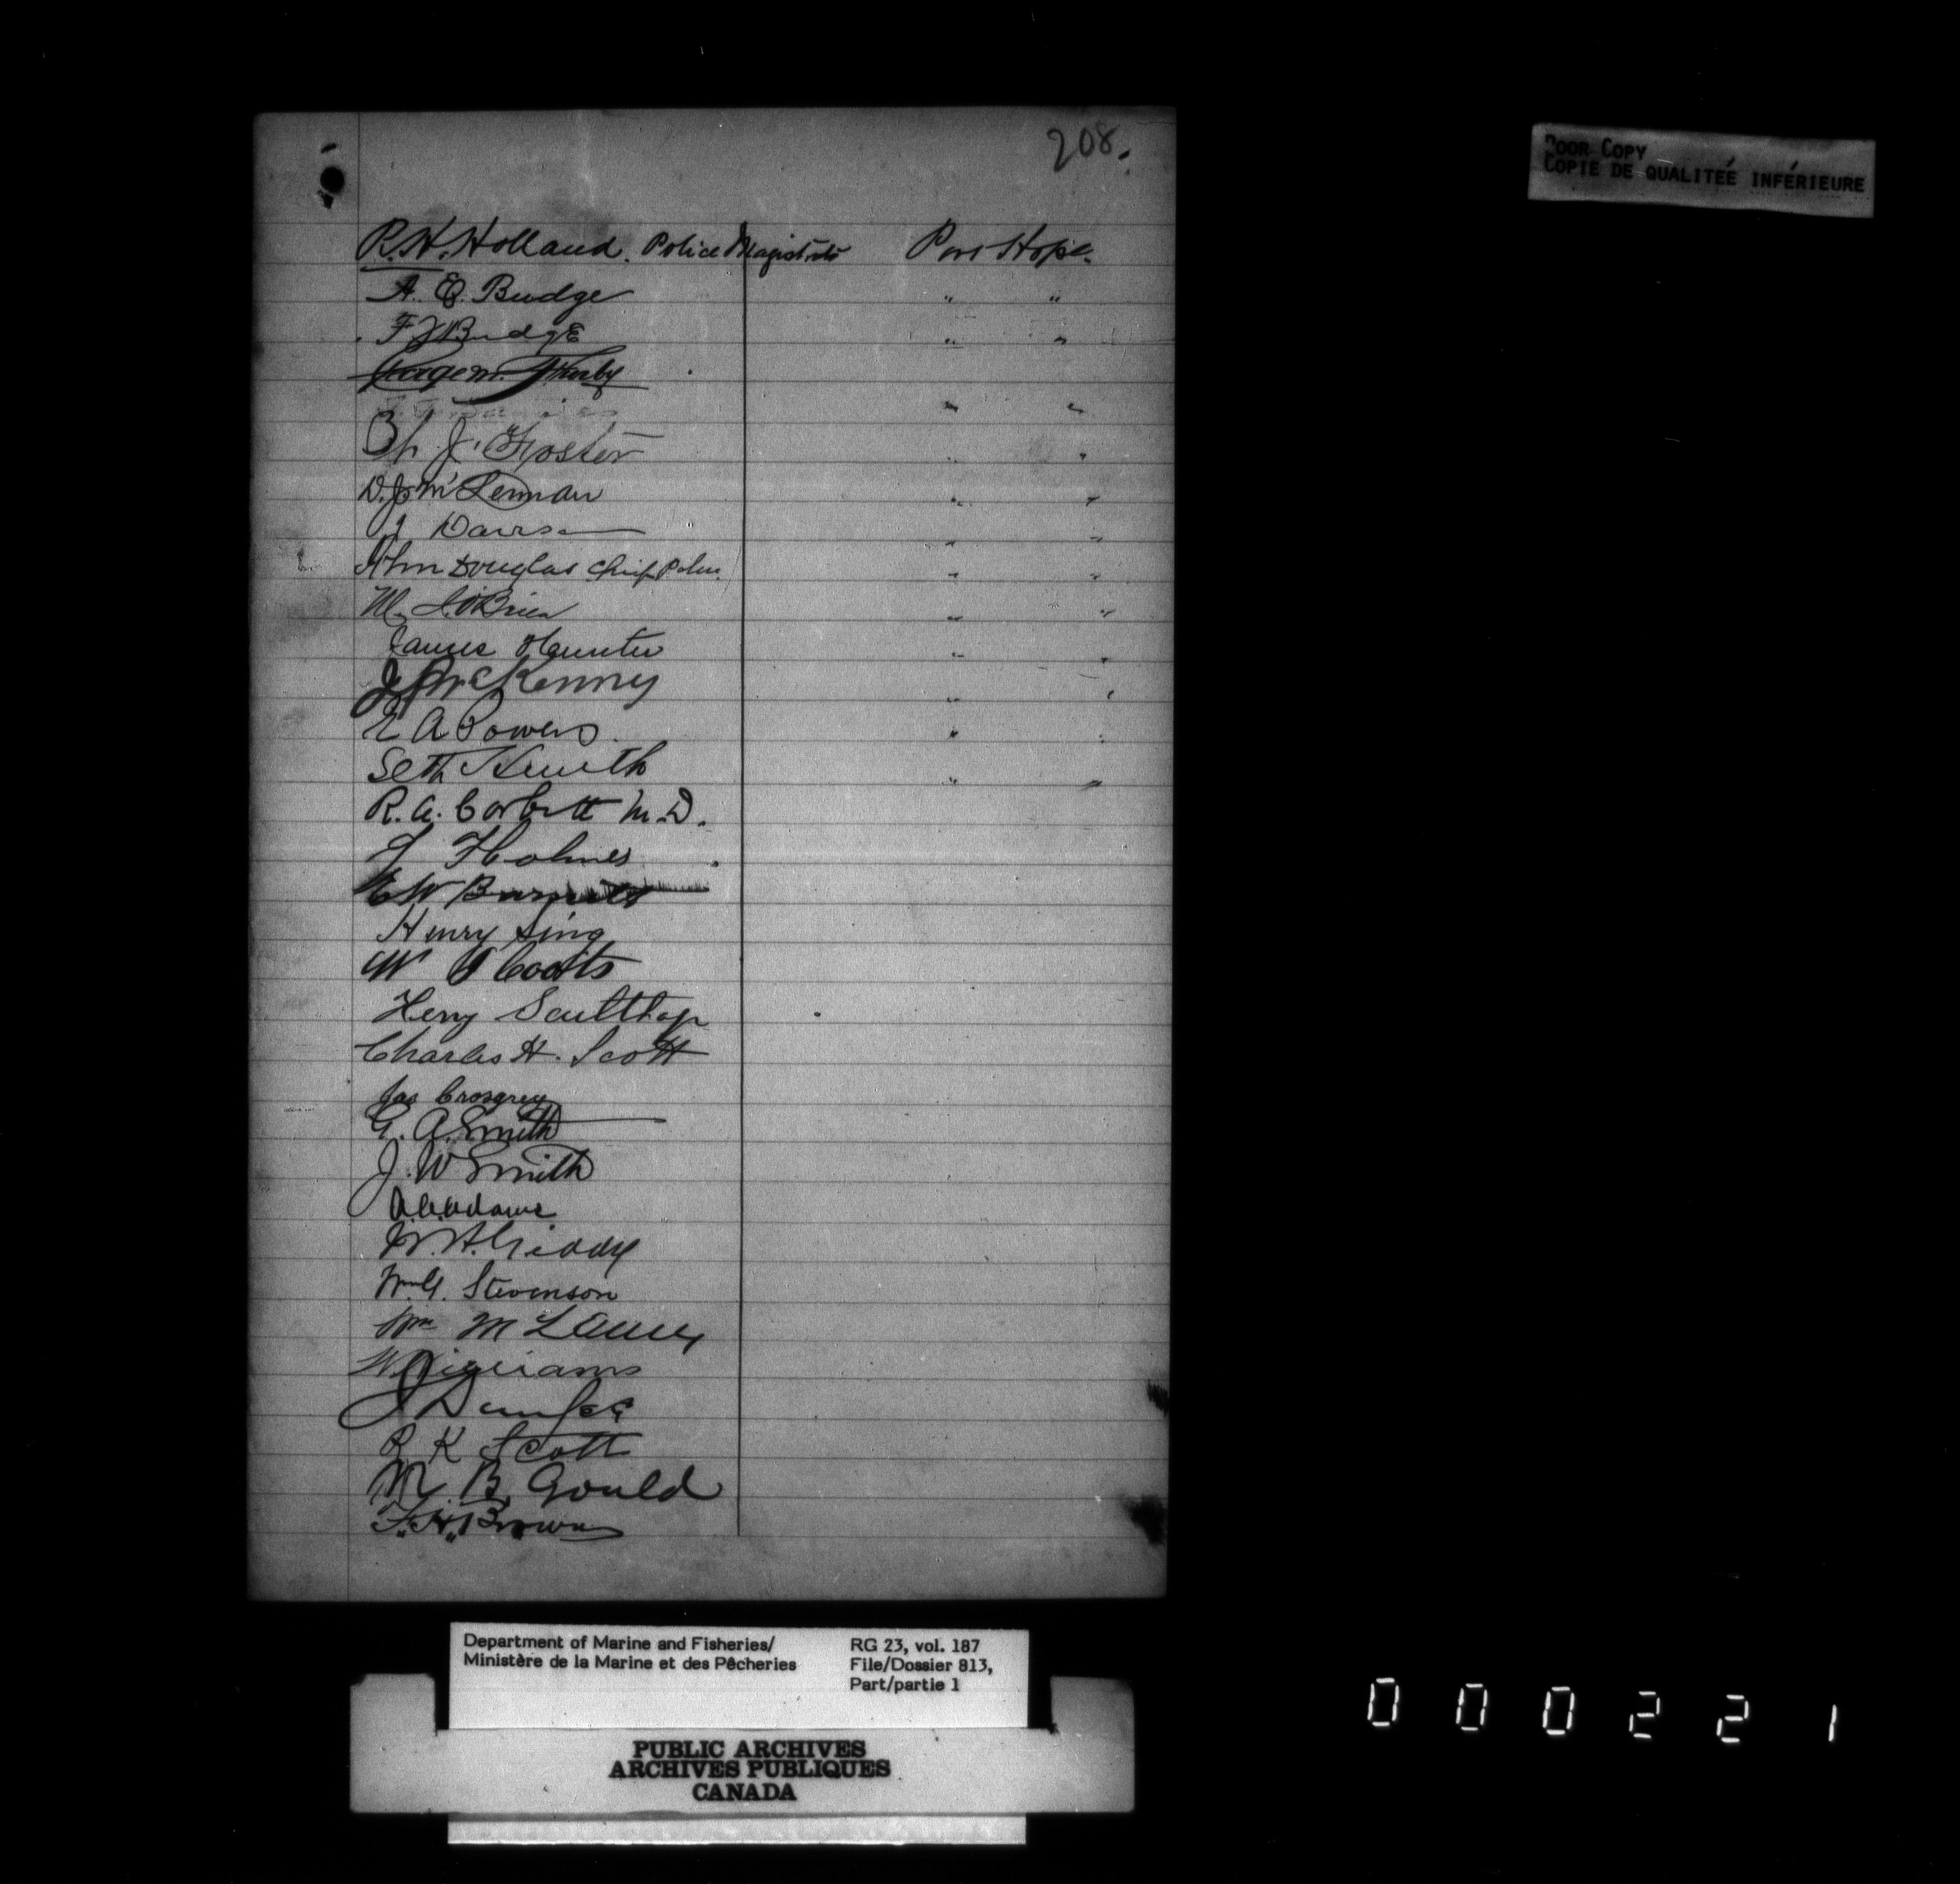 208.
POOR COPY
COPIE DE QUALITEÉ INFÉRIEURE
R.H. Holland. Police Magistrate Port Hope.
A. E. Budge " "
F J Budge " "
" "
J. Foster " "
D. J. McLennan " "
" "
John Douglas Chief Police " "
M. J. O'Brien " "
James Hunter " "
J McKenny " "
E A Powers " "
Seth Smith " "
R. A. Corbett M.D.
Holmes
E W
Henry King
W Coats
Henry Scullthorp
Charles H. Scott
Jas Crosgrey
G. A. Smith
J. W Smith
Adams
W. A. Giddy
Wm G. Stevenson
Wm
Williams
J
R K Scott
M B. Gould
F. H. Brown
Department of Marine and Fisheries/ RG 23, vol. 187
Ministère de la Marine et des Pêcheries File/Dossier 813,
Part/partie 1
PUBLIC ARCHIVES
ARCHIVES PUBLIQUES
CANADA
000221